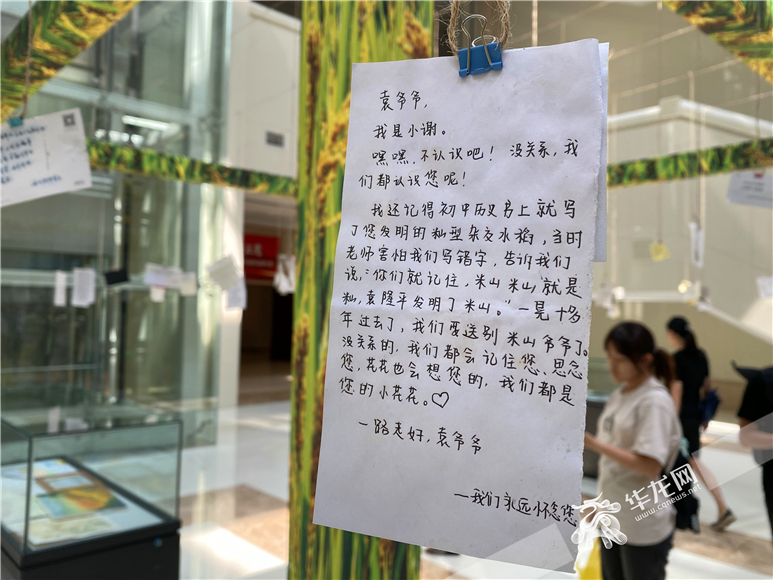 袁爷爷，
我是小谢。
嘿嘿，不认识吧！没关系，我
们都认识您呢！
我还记得初中历史书上就写
了您发明的籼型杂交水稻，当时
老师害怕我们写错字，告诉我们
说，：“你们就记住，米山米山，就是
籼，袁隆平发明了米山。”一晃十多
年过去了，我们要送别米山爷爷了。
没关系的，我们都会记住您、思念
您，花花也会想您的，我们都是
您的小花花。♡
一路走好，袁爷爷
—我们永远怀念您
华龙网
www.cqnews.net